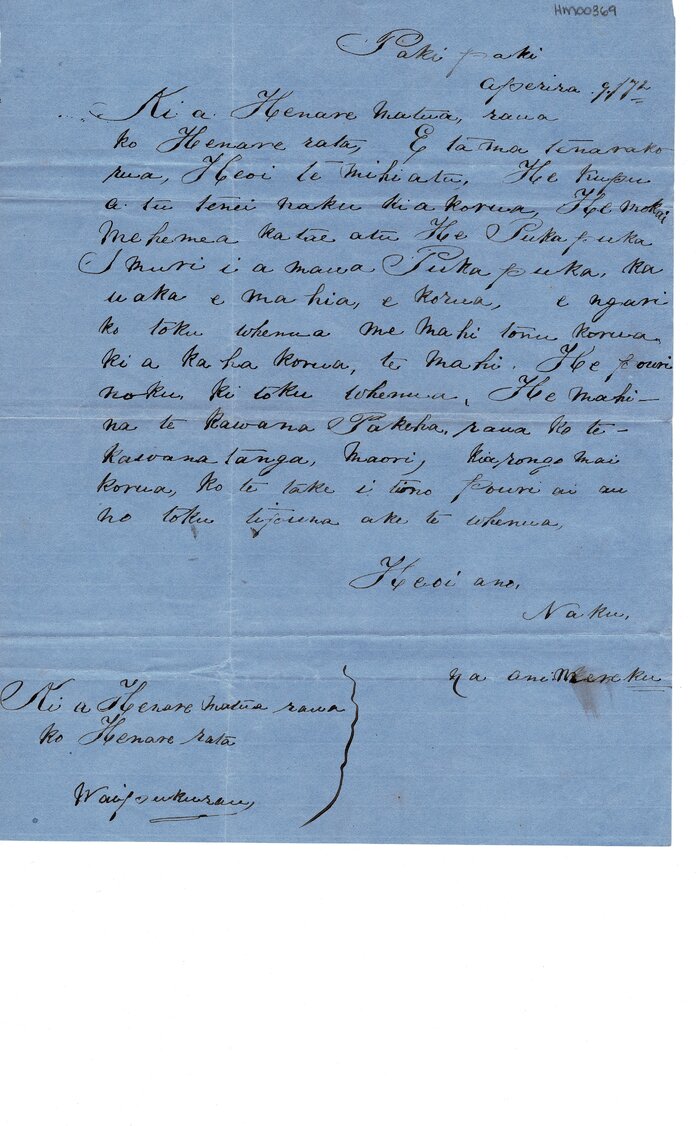 HM00369
Paki paki
Aperira 9/72
Ki a Henare Matua, raua
ko Henare rata, E ta ma tenarako
rua, Heoi te mihi atu, He kupu
a tu tenei naku ki a korua, He mokai
mehemea ka tae atu He Puka puka
I muri i a maua Puka puka, ka
uaka e ma hia, e korua, e ngari
ko toku whenua me mahi tonu korua
ki a ka ha korua, te mahi. He pouri
noku ki toku whenua, He mahi-
na te kawana Pakeha, raua ko te-
kawana tanga, Maori, kia rongo mai
korua, ko te take i tino pouri ai au
no toku tipuna ake te whenua,
Heoi ano,
Naku,
na ani Mereku
Ki a Henare Matua raua
ko Henare rata
Waipukurau,